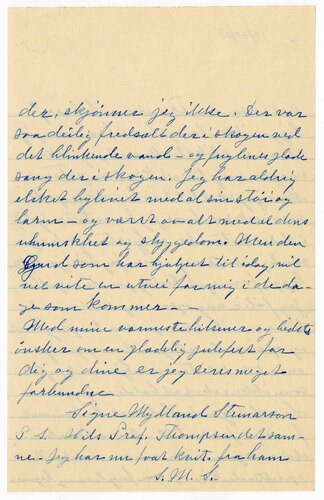 der, skjønner jeg ikke. Der var
saa deilig fredsælt der i skogen ved
det blinkende vand – og fuglenes glade
sang der i skogen. Jeg har aldrig
elsket bylivet med al sin støi og
larm – og værst av alt med al dens
uhumskhet og styggedom. Men den
Gud som har hjulpet til idag, vil
vel vite en utvei for mig i de da-
ge som kommer. –
Med mine varmeste hilsener og bedste
ønsker om en glædelig julefest for
dig og dine er jeg eders meget
forbundne
Signe Mydland Steinarson
P. S. Hils Prof. Thompson det sam-
me. Jeg har nu faat kvit. fra ham
S. M. S.